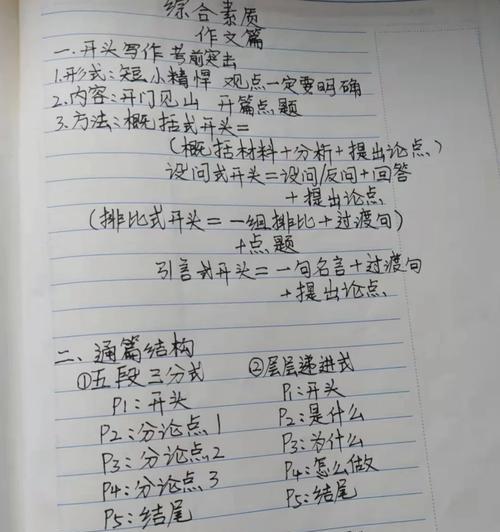 综合素质
作文篇
一.开头写作 考前突击
1.形式:短小精悍 观点一定要明确
2.内容:开门见山 开篇点题
3.方法:概括式开头=
(概括材料+分析+提出论点)
设问式开头=设问/反问+回答
+提出论点
(排比式开头=一组排比+过渡句)
+点题
引言式开头=一句名言+过渡句
+提出论点
二、通篇结构
①五段三分式
P1:开头
P2:分论点1
P3:分论点2
P4:分论点3
P5:结尾
②层层递进式
P1:开头
P2:是什么
P3:为什么
P4:怎么做
P5:结尾